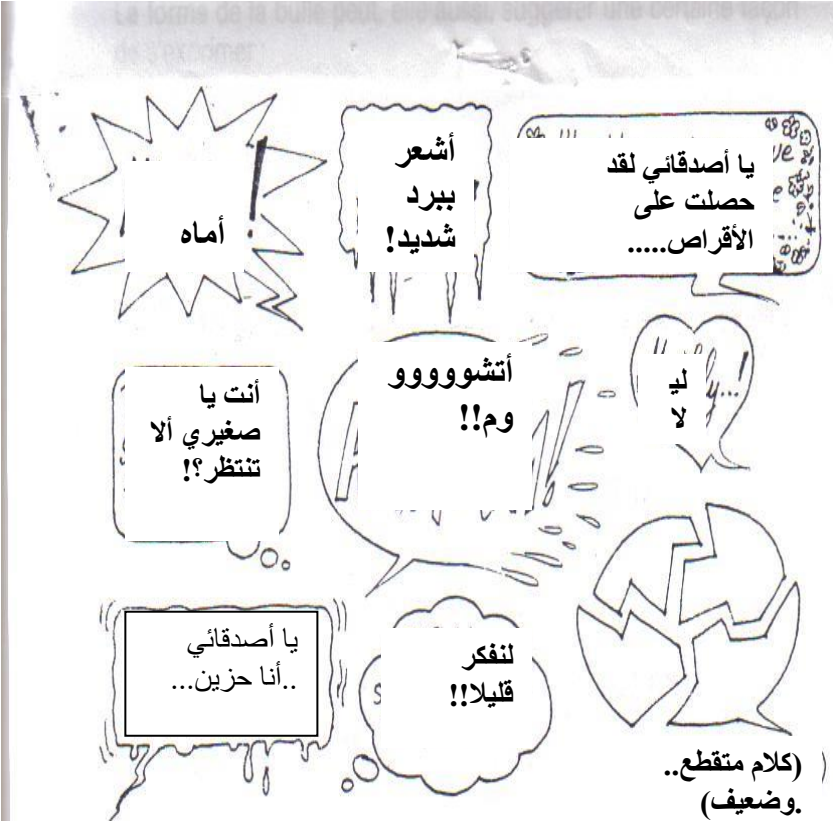 La forme de la bulle peut, elle aussi, suggérer une certaine façon
de s'exprimer :
أماه
أشعر
ببرد
شديد!
يا أصدقائي لقد
حصلت على
الأقراص.....
أنت يا
صغيري ألا
تنتظر؟!
أتشووووو
وم!!
ليـ
لا
يا أصدقائي
..أنا حزين...
لنفكر
قليلا!!
(كلام متقطع..
.وضعيف)